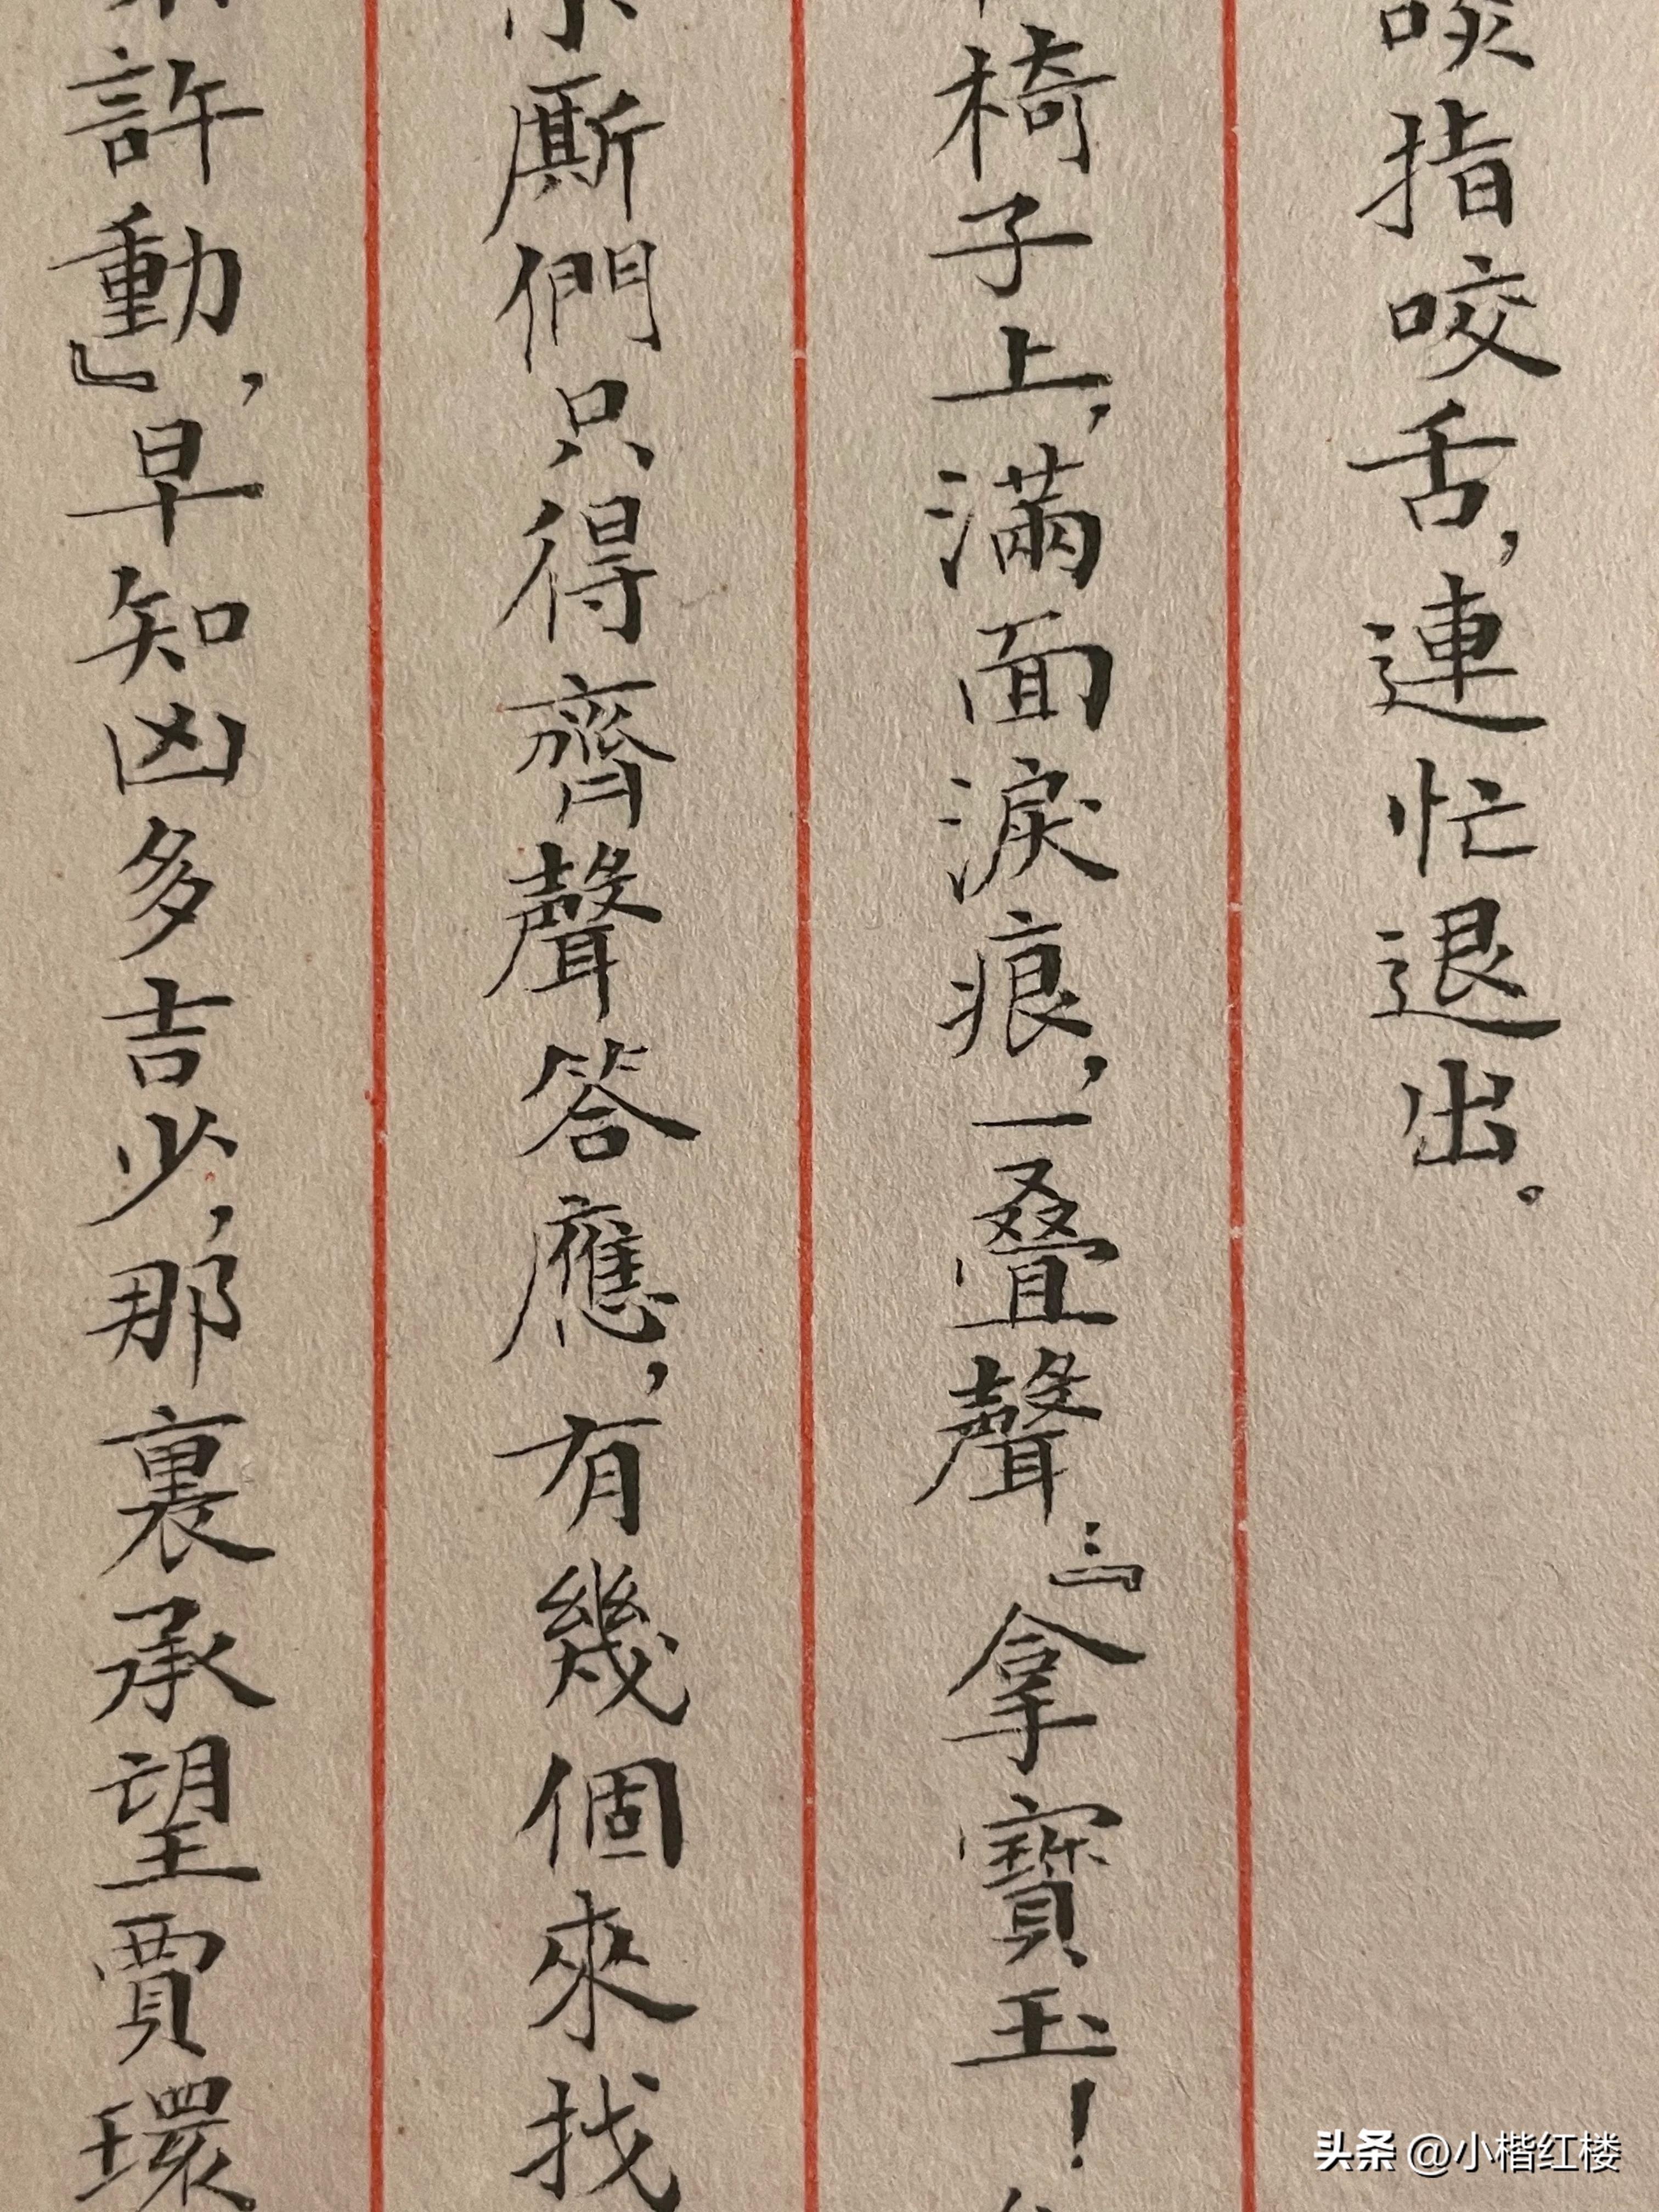 啖指咬舌，連忙退出。
椅子上，滿面淚痕，一叠聲：『拿寶玉！
厮們只得齊聲答應，有幾個來找
許動』，早知凶多吉少，那裏承望賈環
头条 @小楷红楼